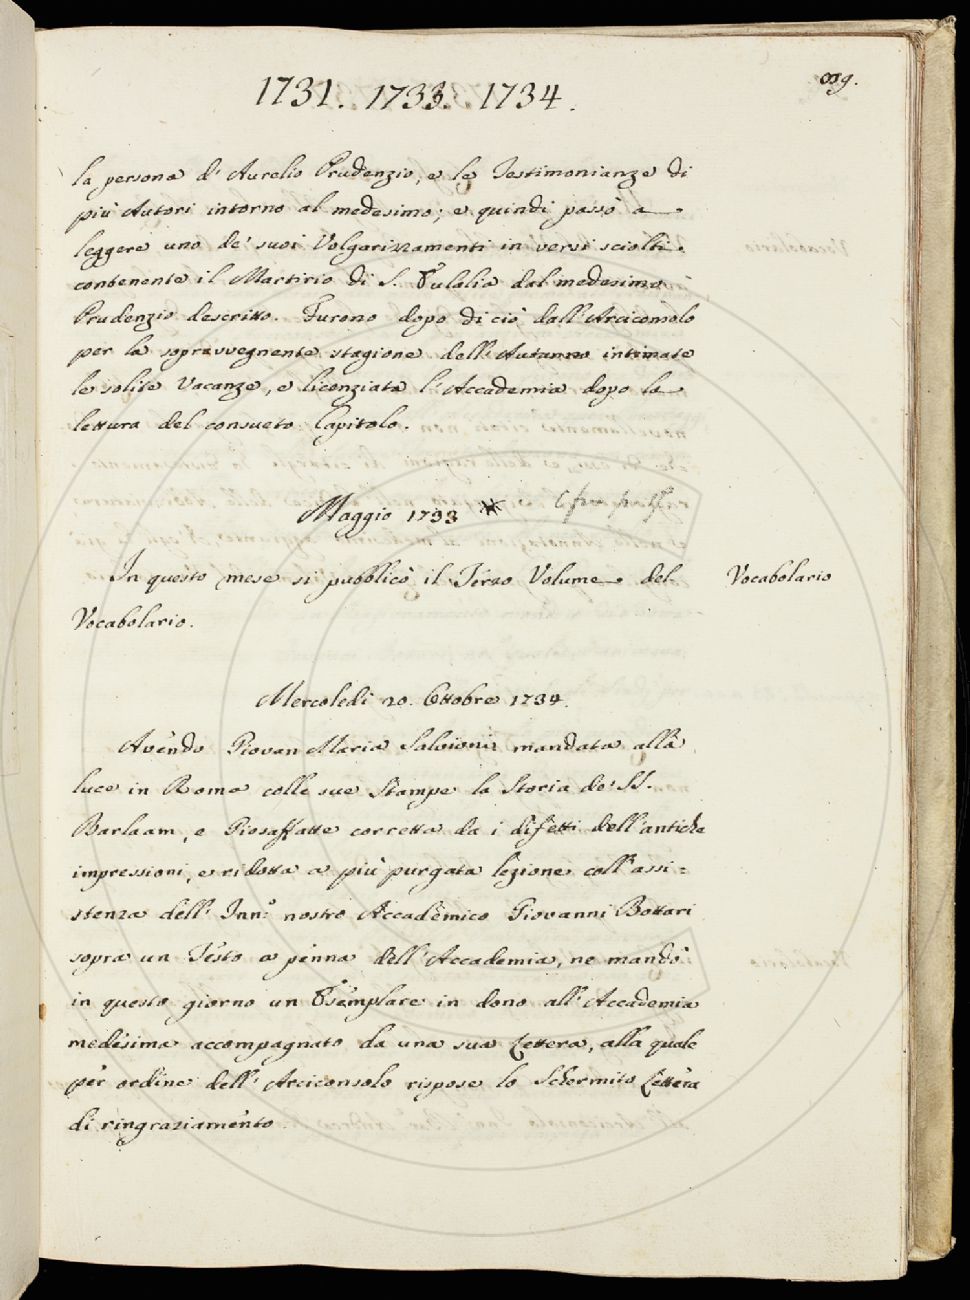 1731. 1733. 1734.
la persona d'Aurelio Prudenzio, e le Testimonianze di
più Autori intorno al medesimo; e quindi passò a
leggere uno de' suoi Volgarizzamenti in versi sciolti
contenente il Martirio di S. Eulalia dal medesimo
Prudenzio descritto. Furono dopo di ciò dall'Arciconsolo
per la sopravvegnente stagione dell'Autunno intimate
le solite Vacanze, e licenziata l'Accademia dopo la
lettura del consueto Capitolo.
Maggio 1733
In questo mese si pubblicò il Terzo Volume del
Vocabolario.
Vocabolario
Mercoledì 20. Ottobre 1734.
Avendo Giovan Maria Salvioni mandata alla
luce in Roma colle sue Stampe la Storia de' SS.
Barlaam, e Giosaffatte corretta da i difetti dell'antiche
impressioni, e ridotta a più purgata lezione coll'assi=
stenza dell'Inn.º nostro Accademico Giovanni Bottari
sopra un Testo a penna dell'Accademia, ne mandò
in questo giorno un Esemplare in dono all'Accademia
medesima accompagnato da una sua Lettera, alla quale
per ordine dell'Arciconsolo rispose lo Schermito Lettera
di ringraziamento.